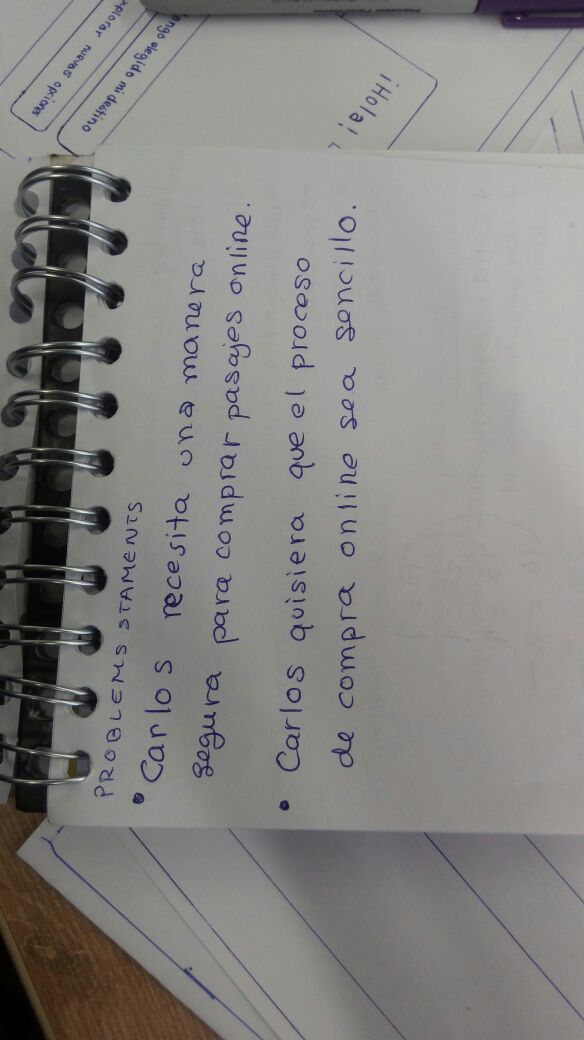 PROBLEMS STAMENTS
• Carlos necesita una manera
segura para comprar pasajes online.
• Carlos quisiera que el proceso
de compra online sea sencillo.
¡Hola!
engo elegido mi destino
xplorar nuevas opciones